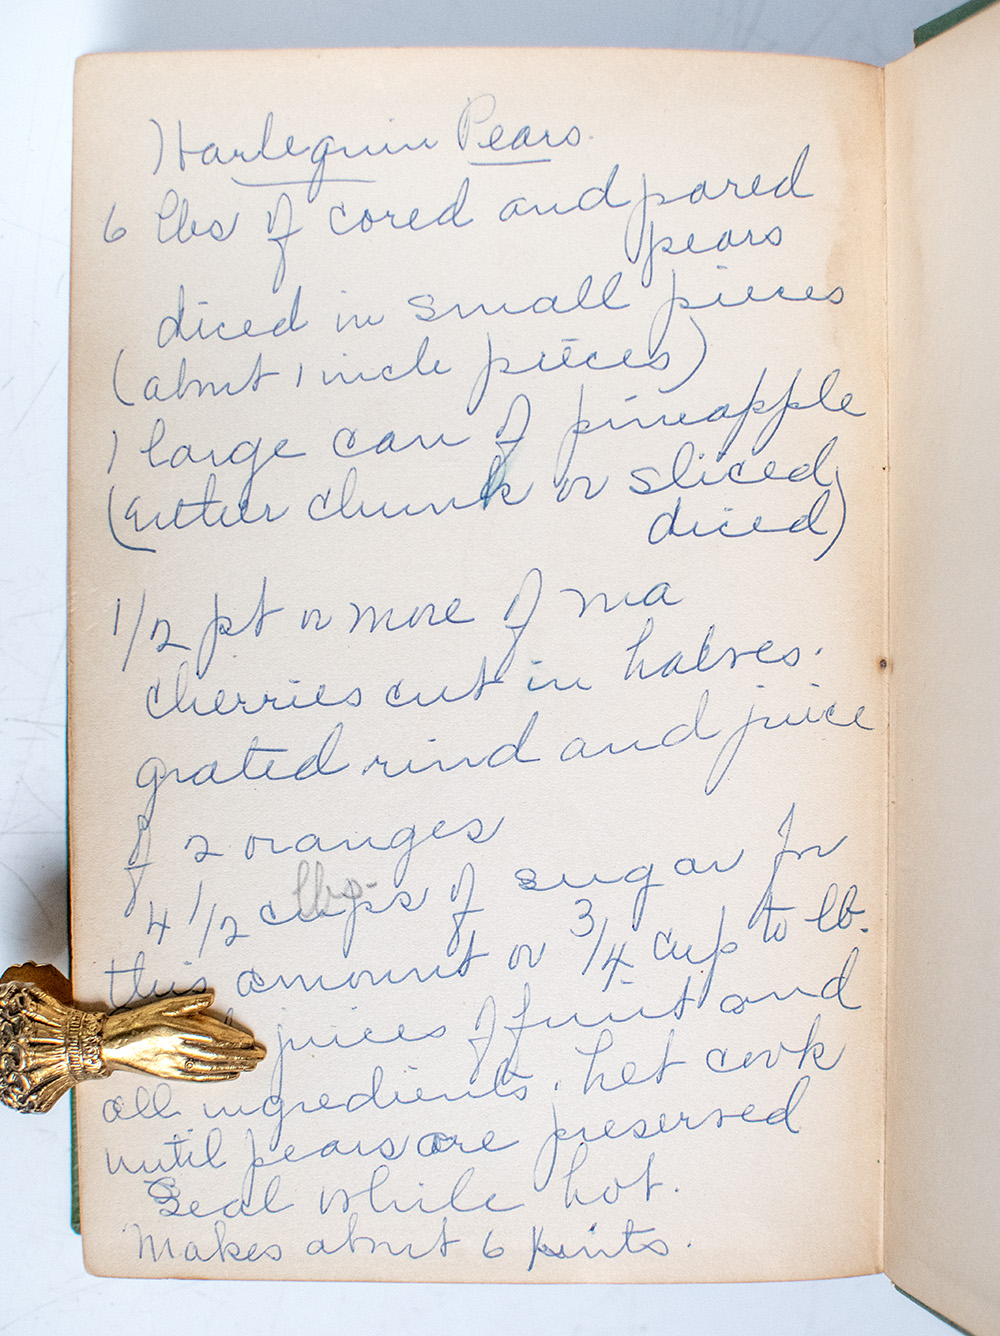 Harlequin Pears.
6 lbs of cored and pared
pears
diced in small pieces
(about 1 inch pieces)
1 large can of pineapple
(Either chunk or sliced,
diced)
1/2 pt or more of ma
cherries cut in halves.
grated rind and juice
of 2 oranges
lbs.
4 1/2 cups of sugar for
this amount or 3/4 cup to lb.
juices of fruit and
all ingredients. Let cook
until pears are preserved
Seal while hot.
Makes about 6 pints.